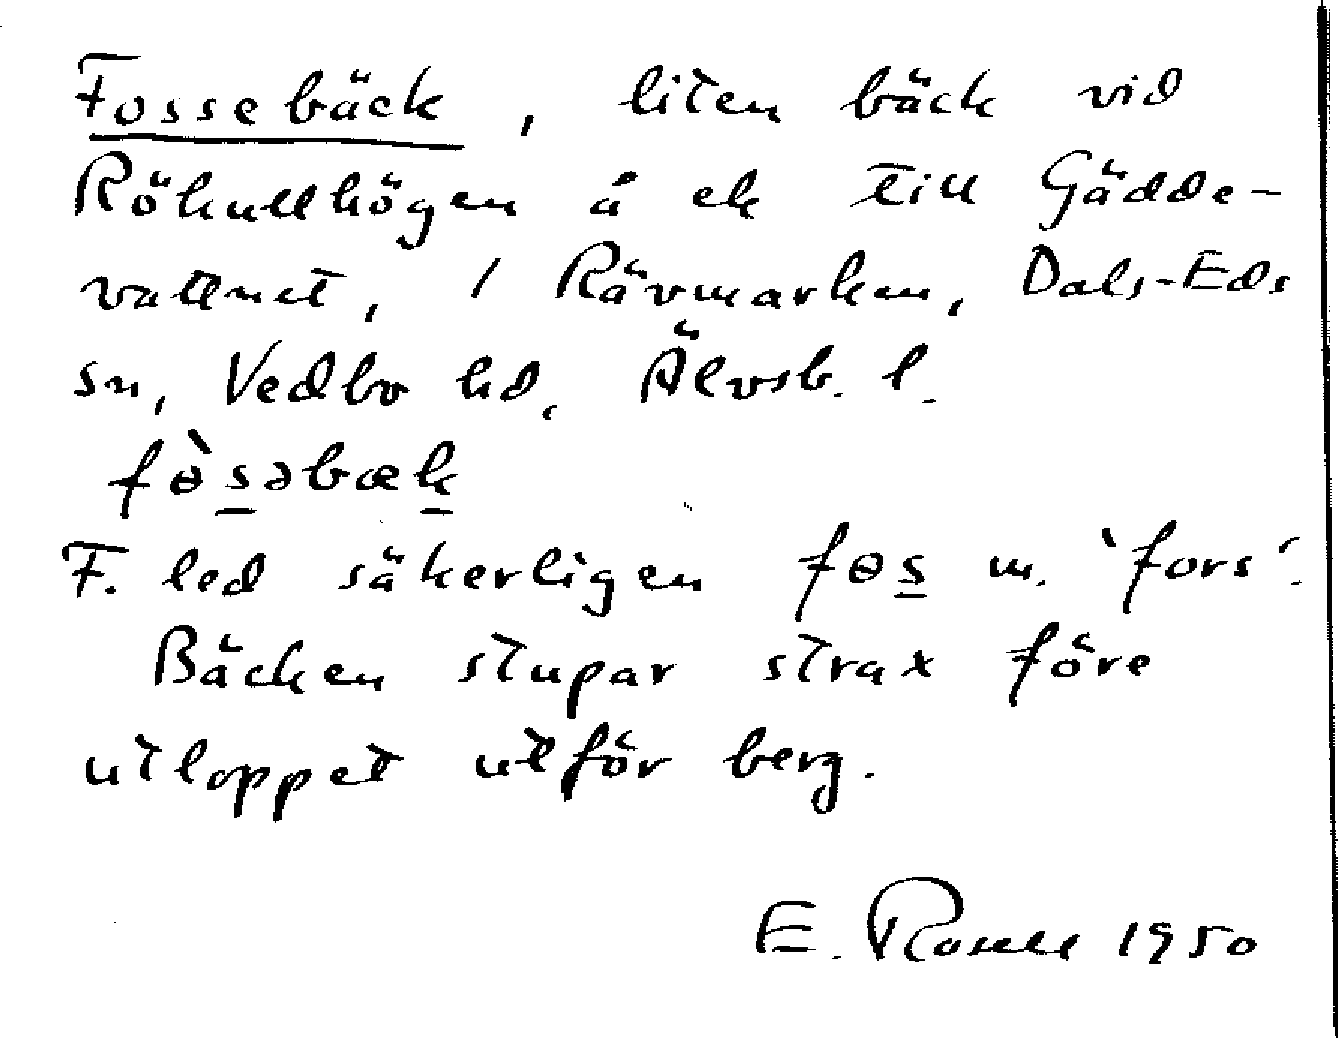 Fossebäck, liten bäck vid
Rökullhögen å ek till Gädde-
vattnet, / Rävmarken, Dals-Eds
sn, Vedbo hd, Älvsb. l.
fɵ̀səbæk
F. led säkerligen fɵs m. ‘fors’.
Bäcken stupar strax före
utloppet utför berg.
E. Rosell 1950